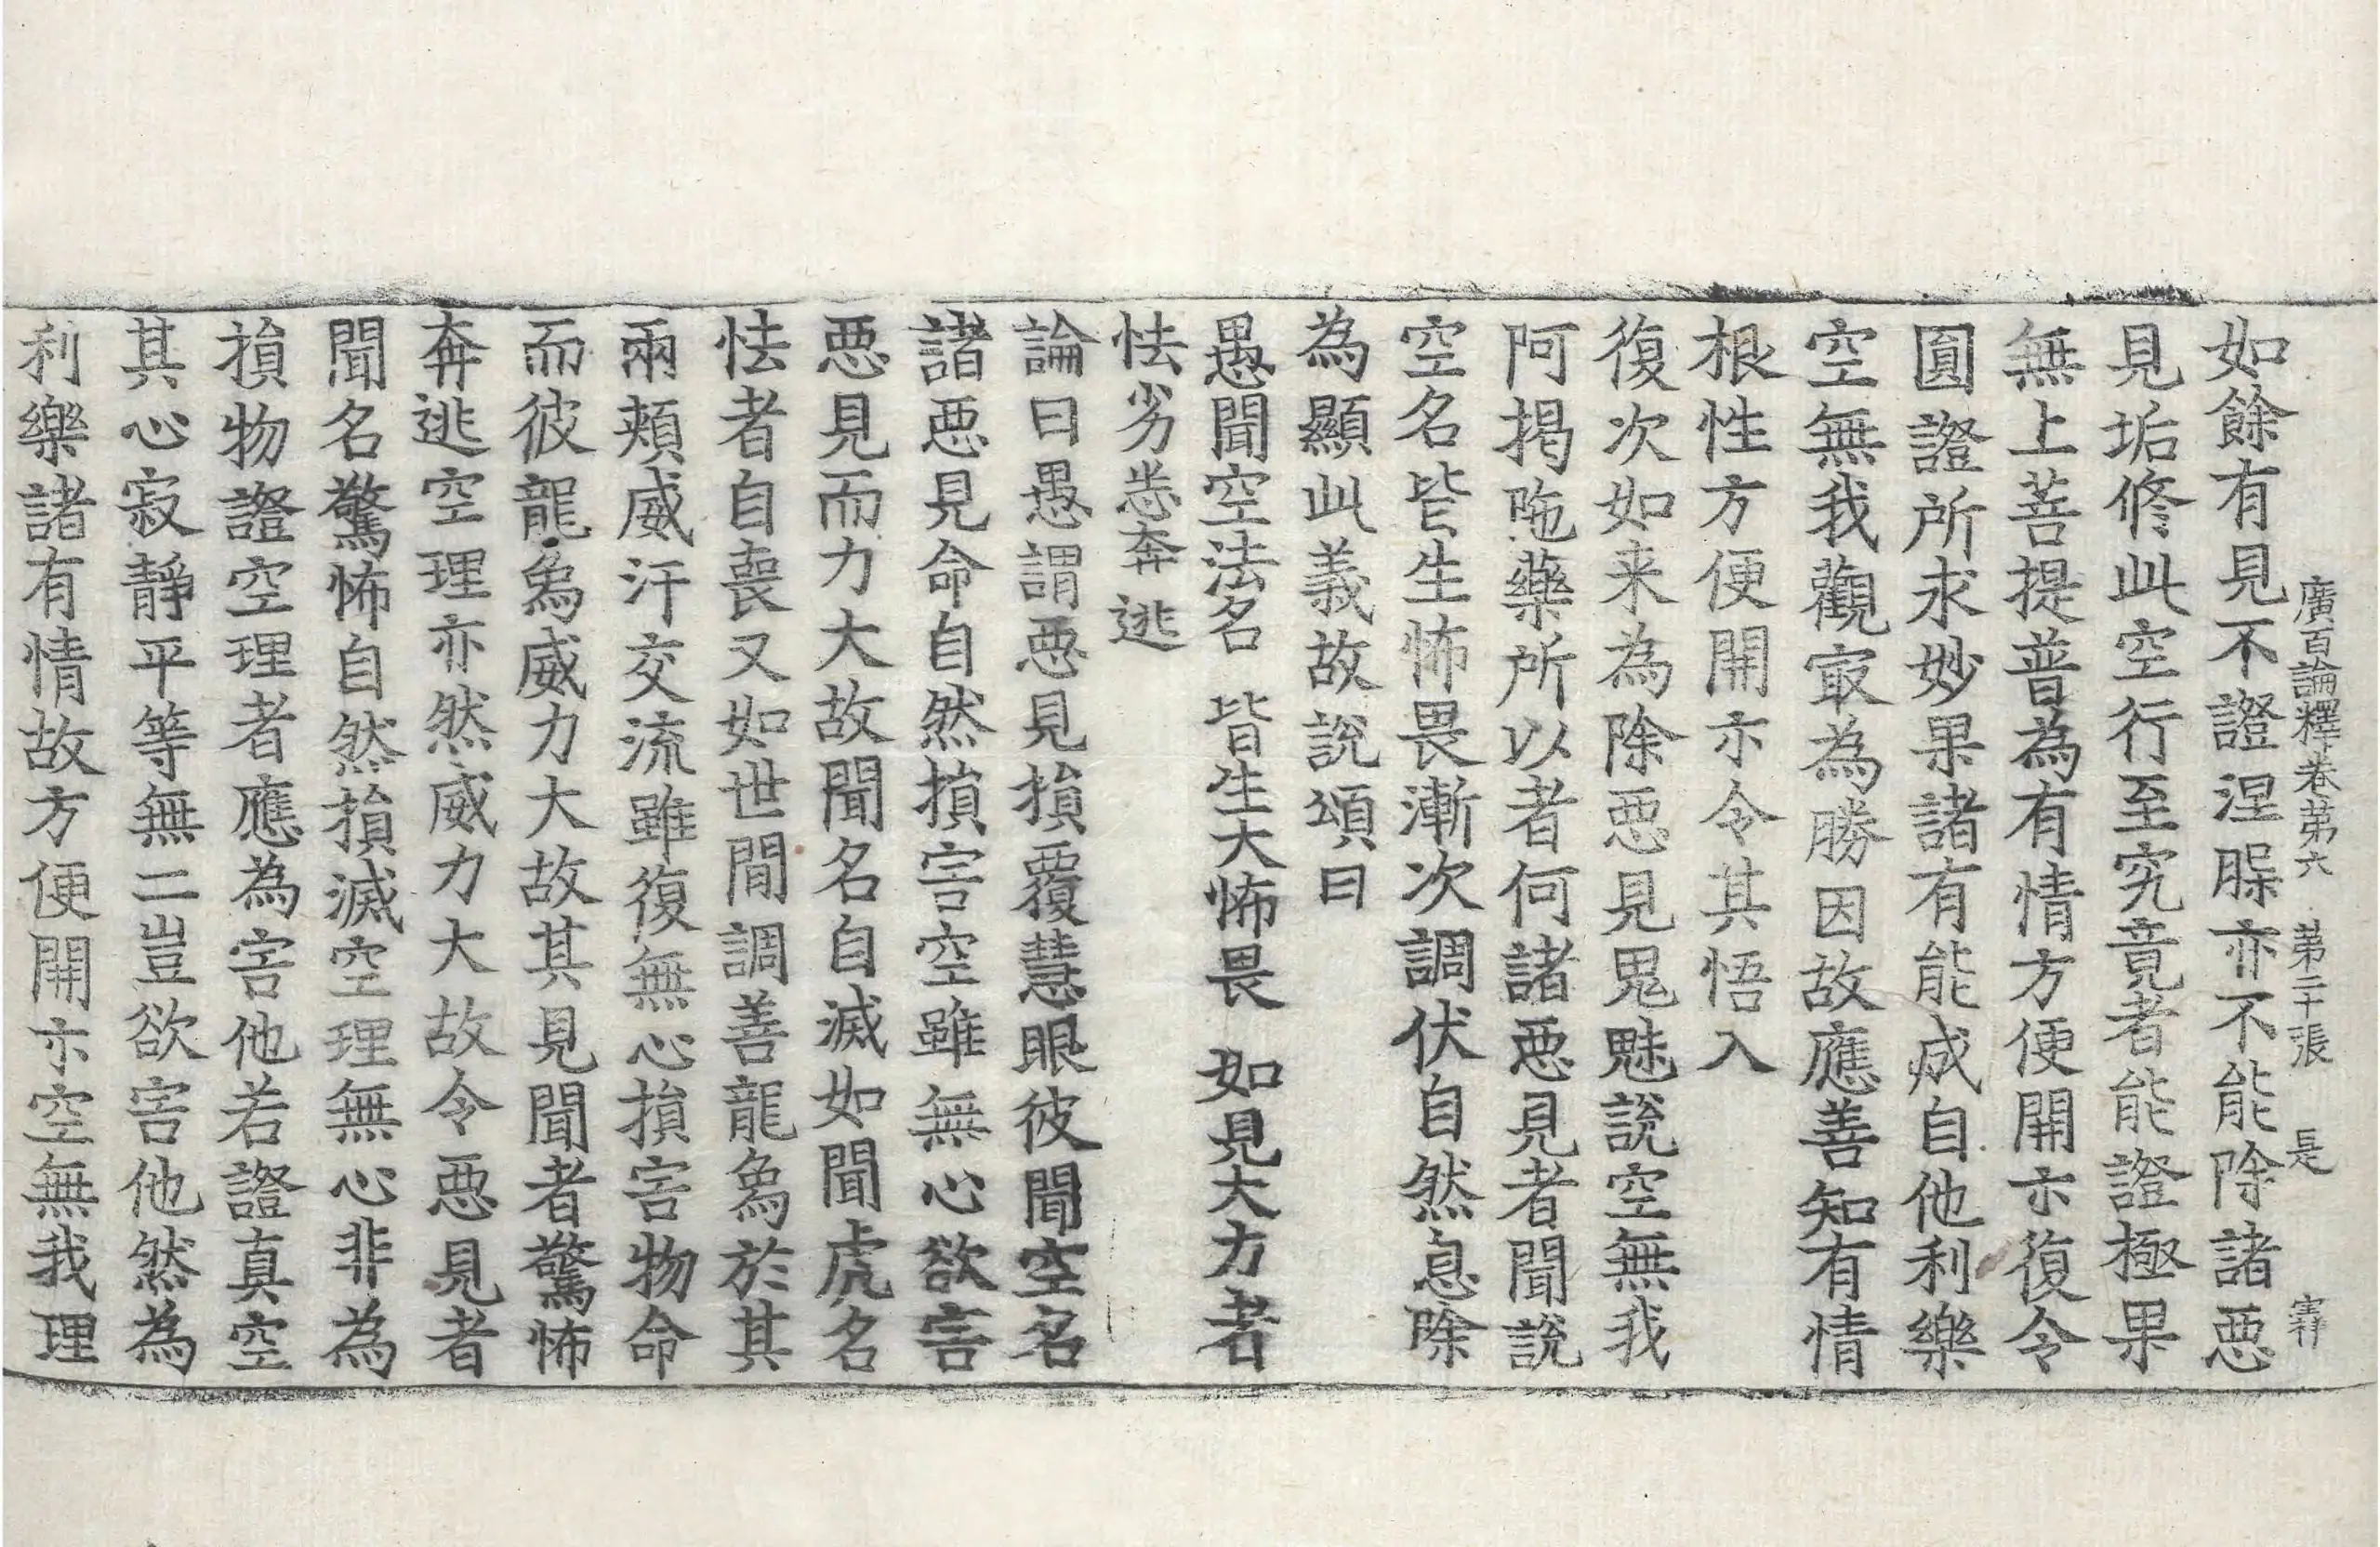 廣百論釋卷苐六　苐二十張　是
如餘有見不證涅槃亦不能除諸惡
見垢修此空行至究竟者能證極果
無上菩提普為有情方便開示復令
圓證所求妙果諸有能成自他利樂
空無我觀㝡為勝因故應善知有情
根性方便開示令其悟入
復次如来為除惡見鬼魅說空無我
阿揭陁藥所以者何諸惡見者聞說
空名皆生怖畏漸次調伏自然息除
為顯此義故說頌曰
愚聞空法名　皆生大怖畏　如見大力者
怯劣悉奔逃
論曰愚謂惡見損覆慧眼彼聞空名
諸惡見命自然損害空雖無心欲害
惡見而力大故聞名自滅如聞虎名
怯者自喪又如世間調善龍象於其
兩頰威汗交流雖復無心損害物命
而彼龍象威力大故其見聞者驚怖
奔逃空理亦然威力大故令惡見者
聞名驚怖自然損滅空理無心非為
損物證空理者應為害他若證真空
其心寂靜平等無二豈欲害他然為
利樂諸有情故方便開示空無我理